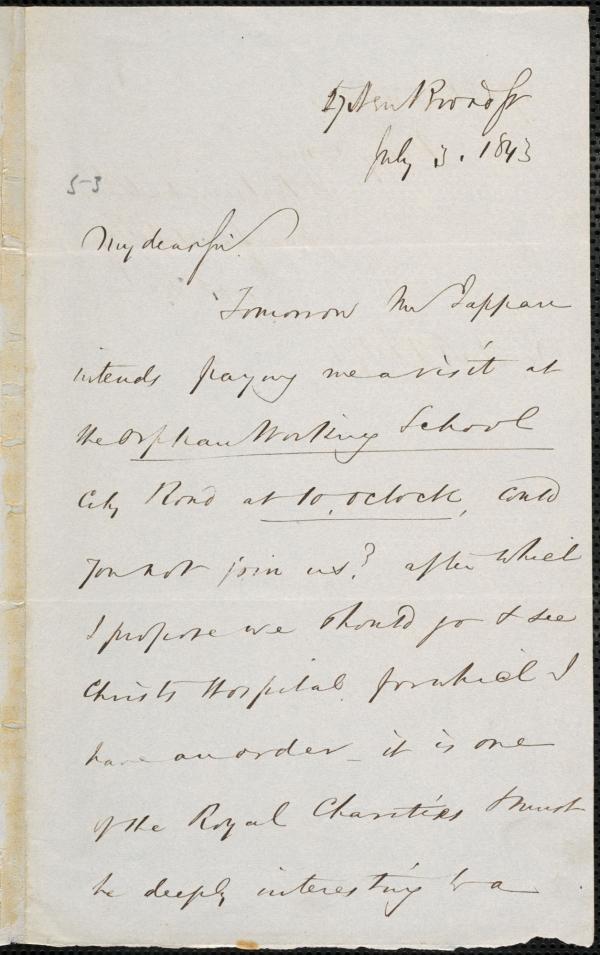 17 New Broad St
July 3. 1843
5-3
My dear Sir.
Tomorrow Mr Tappan
intends paying me a visit at
the Orphan Working School
City Road at 10, oclock, could
you not join us? after which
I propose we should go & see
Christs Hospital for which I
have an order - it is one
of the Royal Charities & must
be deeply interesting to a